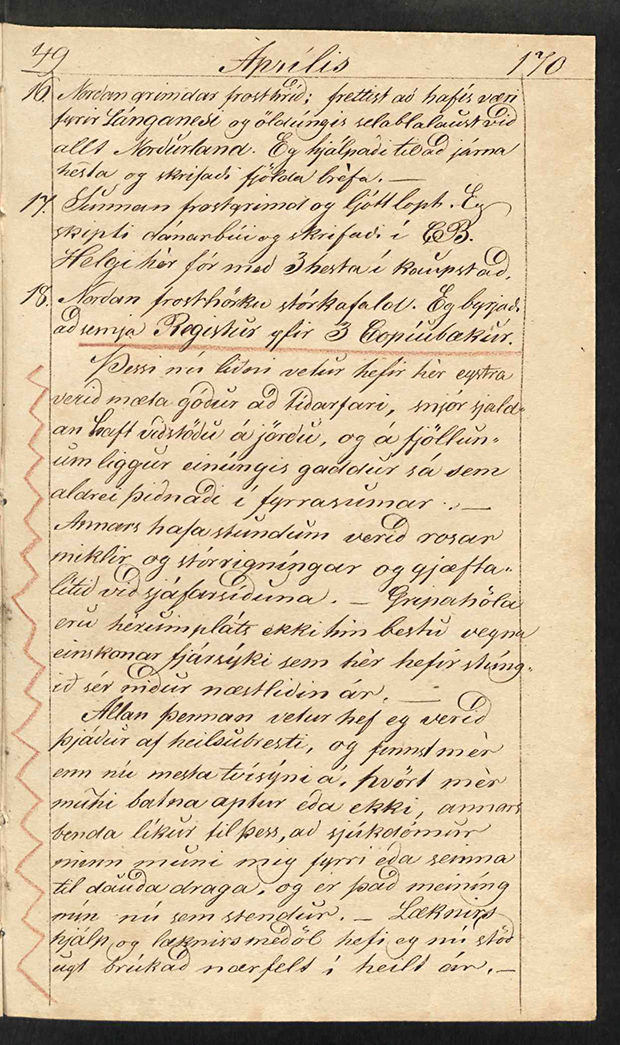 49 Aprílis 170
16. Nordan grimdar frosthríd; frettist ad hafís væri
fyrir Langanesi og öldúngis selablalaust vid
allt Nordurland. Eg hjálpadi til ad járna
hesta og skrifadi fjölda bréfa. —
17. Sunnan frostgrimd og ljótt lopt. Eg
skipti dánarbúi og skrifadi í CB.
Helgi hér fór med 3 hesta í kaupstad.
18. Nordan frosthörku stórkafald. Eg byrjadi
ad semja Registur yfir 3 Copíubækur.
Þessi nú lidni vetur hefir hér eystra
verid mæta gódur ad tídarfari, snjór sjald-
an haft vidstödu á jördu, og á fjöllun-
um liggur einúngis gaddur sá sem
aldrei þidnadi í fyrrasumar. —
Annars hafa stundum verid rosar
miklir og stórrigníngar og gjæfta-
lítid vid sjáfarsíduna. — Gripahöld
eru hérumpláts ekki hin bestu vegna
einskonar fjársýki sem hér hefir stúng-
id sér nidur næstlidin ár. —
Allan þennan vetur hef eg verid
þjádur af heilsubresti, og finnst mér
enn nú mesta tvísýni á, hvört mér
muni batna aptur eda ekki, annars
benda líkur til þess, ad sjúkdómur
minn muni mig fyrri eda seinna
til dauda draga, og er þad meiníng
mín nú sem stendur. — Læknirs
hjálp og læknirsmedöl hefi eg nú stöd
ugt brúkad nærfelt í heilt ár. —